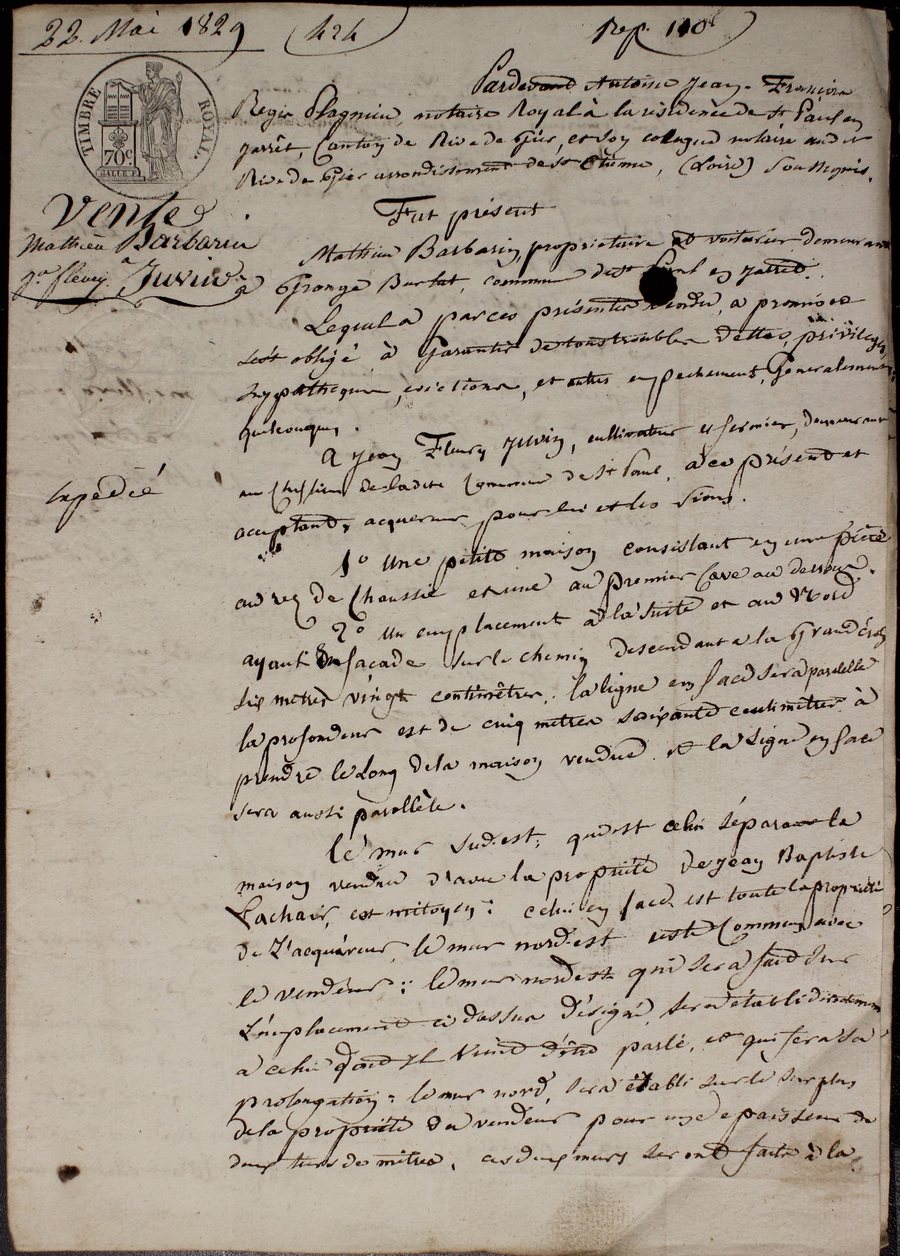 22. Mai 1829 (424) Rep. 110
Pardevant Antoine Jean-François
Regis Plagnieu, notaire Royal à la résidence de St Paul en
Jarrêt, Canton de Rive de Gier, et son colegue notaire audit
Rive de Gier arrondissement de St Etienne, (Loire) Soussignés.
TIMBRE ROYAL
70c
Vente
Mathieu Barbarin
à
Jn fleury Juvin
Fut présent
Mathieu Barbarin, propriétaire et voiturier demeurant
à Grange Burlat, commune de St Paul en Jarred.
Lequel a par ces présentes vendu, a promis et
s'est obligé à garantir de tous troubles dettes, privilèges,
hypothèques, evictions, et autres empechement, Généralement
quelconques.
A Jean Fleury Juvin, cultivateur et fermier, demeurant
au de ladite Commune de St Paul, à ce présent et
acceptant, acquereur pour lui et les siens.
Expédié
1o Une petite maison consistant en une pièce
au rez de Chaussée et une au premier Cave au dessous.
2o Un emplacement à la suite et au Nord
ayant en façade sur le chemin descendant à la Grand
six mètres vingt centimètres. la ligne en face sera parallelle
la profondeur est de cinq mètres soixante centimètres à
prendre le Long de la maison vendue et la Ligne en face
sera aussi parallèle.
le mur sud-est, qu'est celui séparant la
maison vendue d'avec la propriété de Jean Baptiste
Lachair, est mitoyen : celui en face est toute la propriété
de L'acquéreur, le mur nord-est reste Commun avec
le vendeur : le mur nord est qui sera fait sur
L'emplacement ci dessus désigné, sera établi
à celui dont il vient d'être parlé, et qui fera sa
prolongation : le mur nord, sera établi sur le surplus
de la propriété du vendeur pour une epaisseur de
deux tiers de mètres, ces deux murs seront faits à la